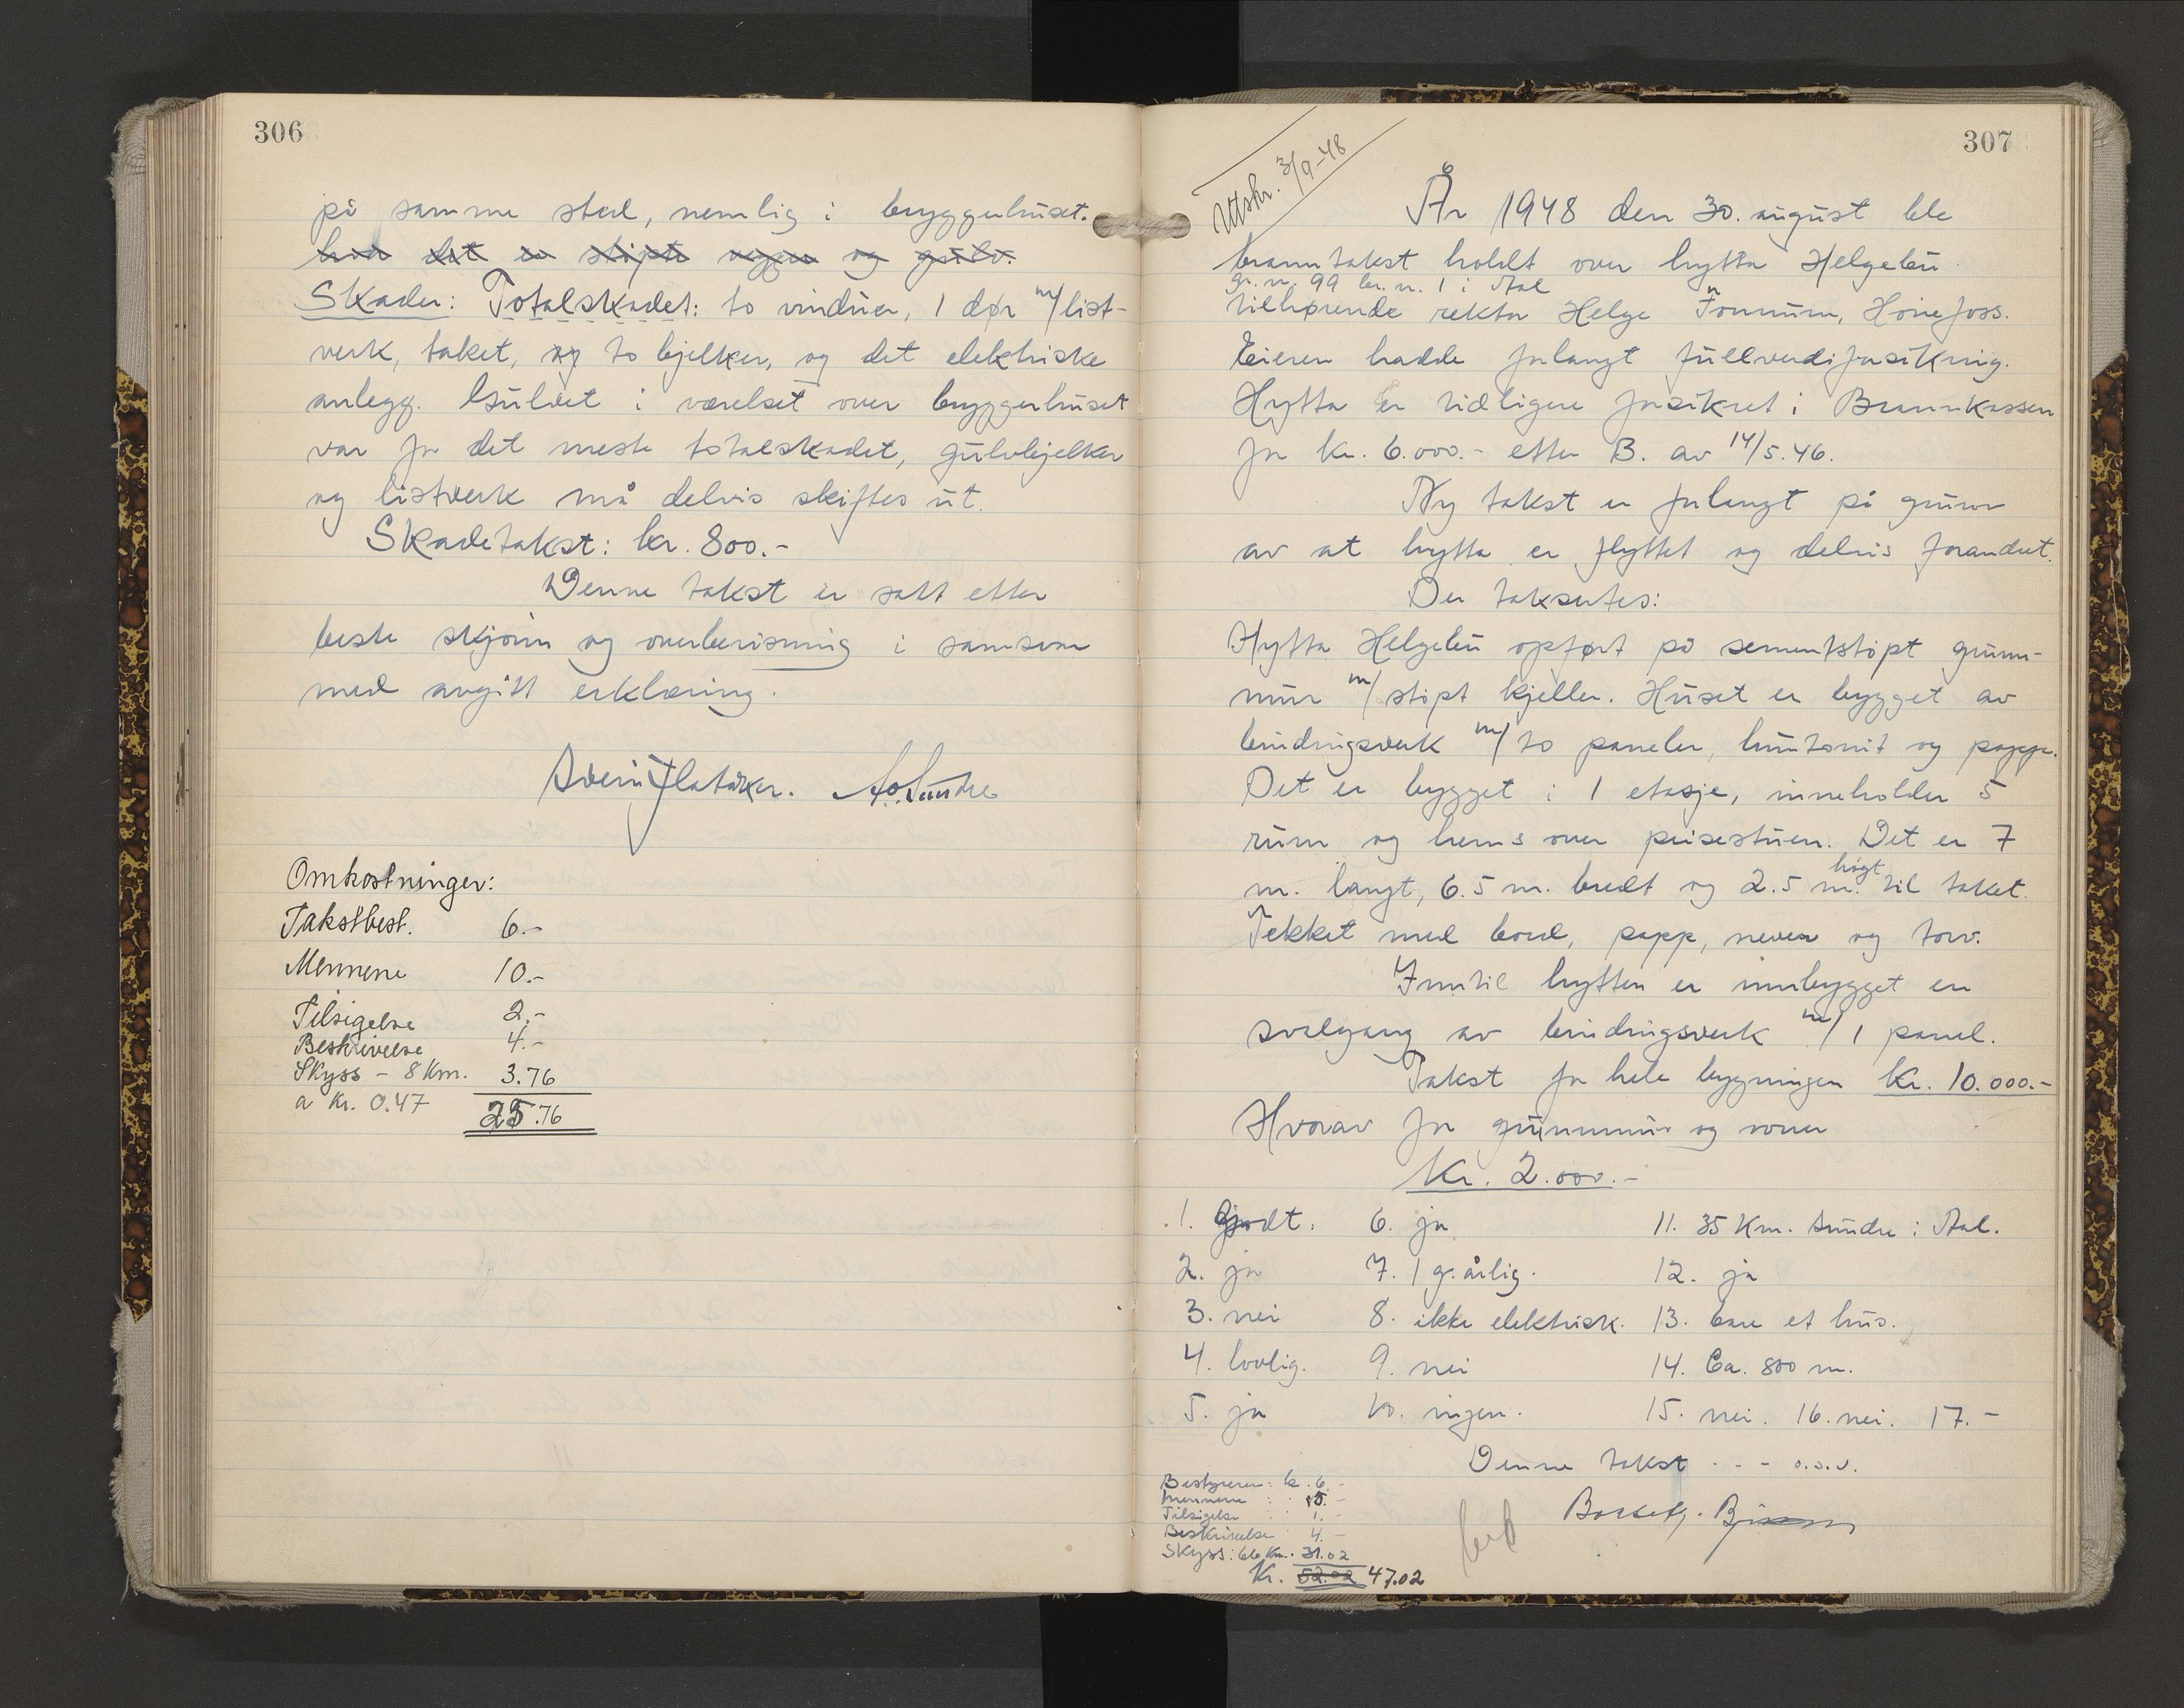 306
på samme sted, nemlig i bryggerhuset.
hvor det er støpte vegger og gulv.
Skader: Totalskadet: to vinduer, 1 dør m/list-
verk, taket, og to bjelker, og det elektriske
anlegg. Gulvet i værelset over bryggerhuset
var for det meste totalskadet, gulvbjelker
og listverk må delvis skiftes ut.
Skadetakst: kr. 800.-
Denne takst er satt etter
beste skjønn og overbevisning i samsvar
med avgitt erklæring.
Svein Flatåker. A. O. Sundre
Omkostninger:
Takstbest. 6.-
Mennene 10.-
Tilsigelse 2.-
Beskrivelse 4.-
Skyss - 8 Km. 3.76
a kr. 0.47
25.76
307
Utskr. 3/9-48
6
År 1948 den 30. august ble
branntakst holdt over hytta Helgebu
gr. n. 99 br. n. 1 i Aal
tilhørende rektor Helge Fonnum, Hønefoss.
Eieren hadde forlangt fullverdiforsikring.
Hytta er tidligere forsikret i Brannkassen
for kr. 6.000.- etter B. av 14/5.46.
Ny takst er forlangt på grunn
av at hytta er flyttet og delvis forandret.
Der taksertes:
Hytta Helgebu opført på sementstøpt grunn-
mur m/ støpt kjeller. Huset er bygget av
bindingsverk m/ to paneler, huntonit og papp.
Det er bygget i 1 etasje, inneholder 5
rum og hems over peisestuen. Det er 7
m. langt, 6.5 m. bredt og 2.5 m. høgt til taket.
Tekket med bord, papp, never og torv.
Inntil hytten er innbygget en
svalgang av bindingsverk m/ 1 panel.
Takst for hele bygningen kr. 10.000.-
Hvorav for grunnmur og ovner
kr. 2.000.-
1. godt. 6. ja 11. 35 Km. Sundre i Aal.
2. ja 7. 1 g. årlig. 12. ja
3. nei 8. ikke elektrisk. 13. bare et hus.
4. lovlig. 9. nei 14. Ca. 800 m.
5. ja 10. ingen. 15. nei. 16. nei. 17. -
Denne takst - - - o.s.v.
Bestyreren: kr. 6.-
Mennene : 5.-
Tilsigelse : 1.-
Beskrivelse 4.-
Skyss: 66 Km. 31.02
Kr. 52.02 47.02